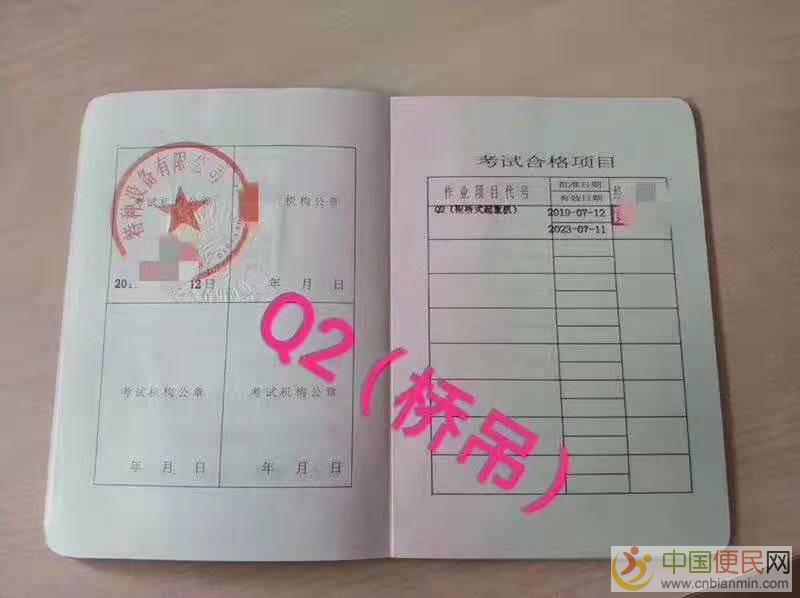 特种设备有限公司
考试机构公章
机构公章
12日
年 月 日
考试机构公章
考试机构公章
年 月 日
年 月 日
考试合格项目
作业项目代号
批准日期
有效日期
经
Q2（限桥式起重机）
2019-07-12
2023-07-11
Q2（桥吊）
中国便民网
www.cnbianmin.com